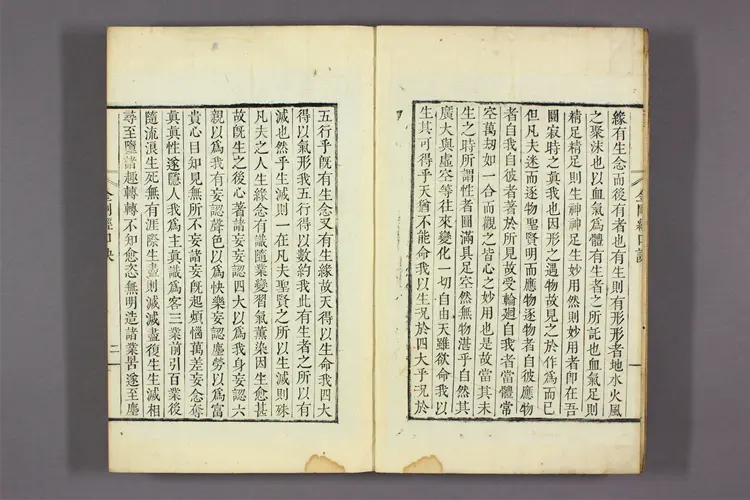 緣有生念而後有者也有生則有形形者地水火風
之聚沫也以血氣爲體有生者之所託也血氣足則
精足精足則生神神足生妙用然則妙用者卽在吾
圓寂時之眞我也因形之遇物故見之於作爲而已
但凡夫迷而逐物聖賢明而應物逐物者自彼應物
者自我自彼者著於所見故受輪廻自我者當體常
空萬劫如一合而觀之皆心之妙用也是故當其未
生之時所謂性者圓滿具足空然無物湛乎自然其
廣大與虛空等往來變化一切自由天雖欲命我以
生其可得乎天猶不能命我以生况於四大乎况於
五行乎旣有生念又有生緣故天得以生命我四大
得以氣形我五行得以數約我此有生者之所以有
滅也然乎生滅則一在凡夫聖賢之所以生滅則殊
凡夫之人生緣念有識隨業變習氣薰染因生愈甚
故旣生之後心著諸妄妄認四大以爲我身妄認六
親以爲我有妄認聲色以爲快樂妄認塵勞以爲富
貴心目知見無所不妄諸妄旣起煩惱萬差妄念奪
眞眞性遂隱人我爲主眞識爲客三業前引百業後
隨流浪生死無有涯際生盡則滅滅盡復生生滅相
尋至墮諸趣轉轉不知愈恣無明造諸業罟遂至塵
金剛經口訣
二